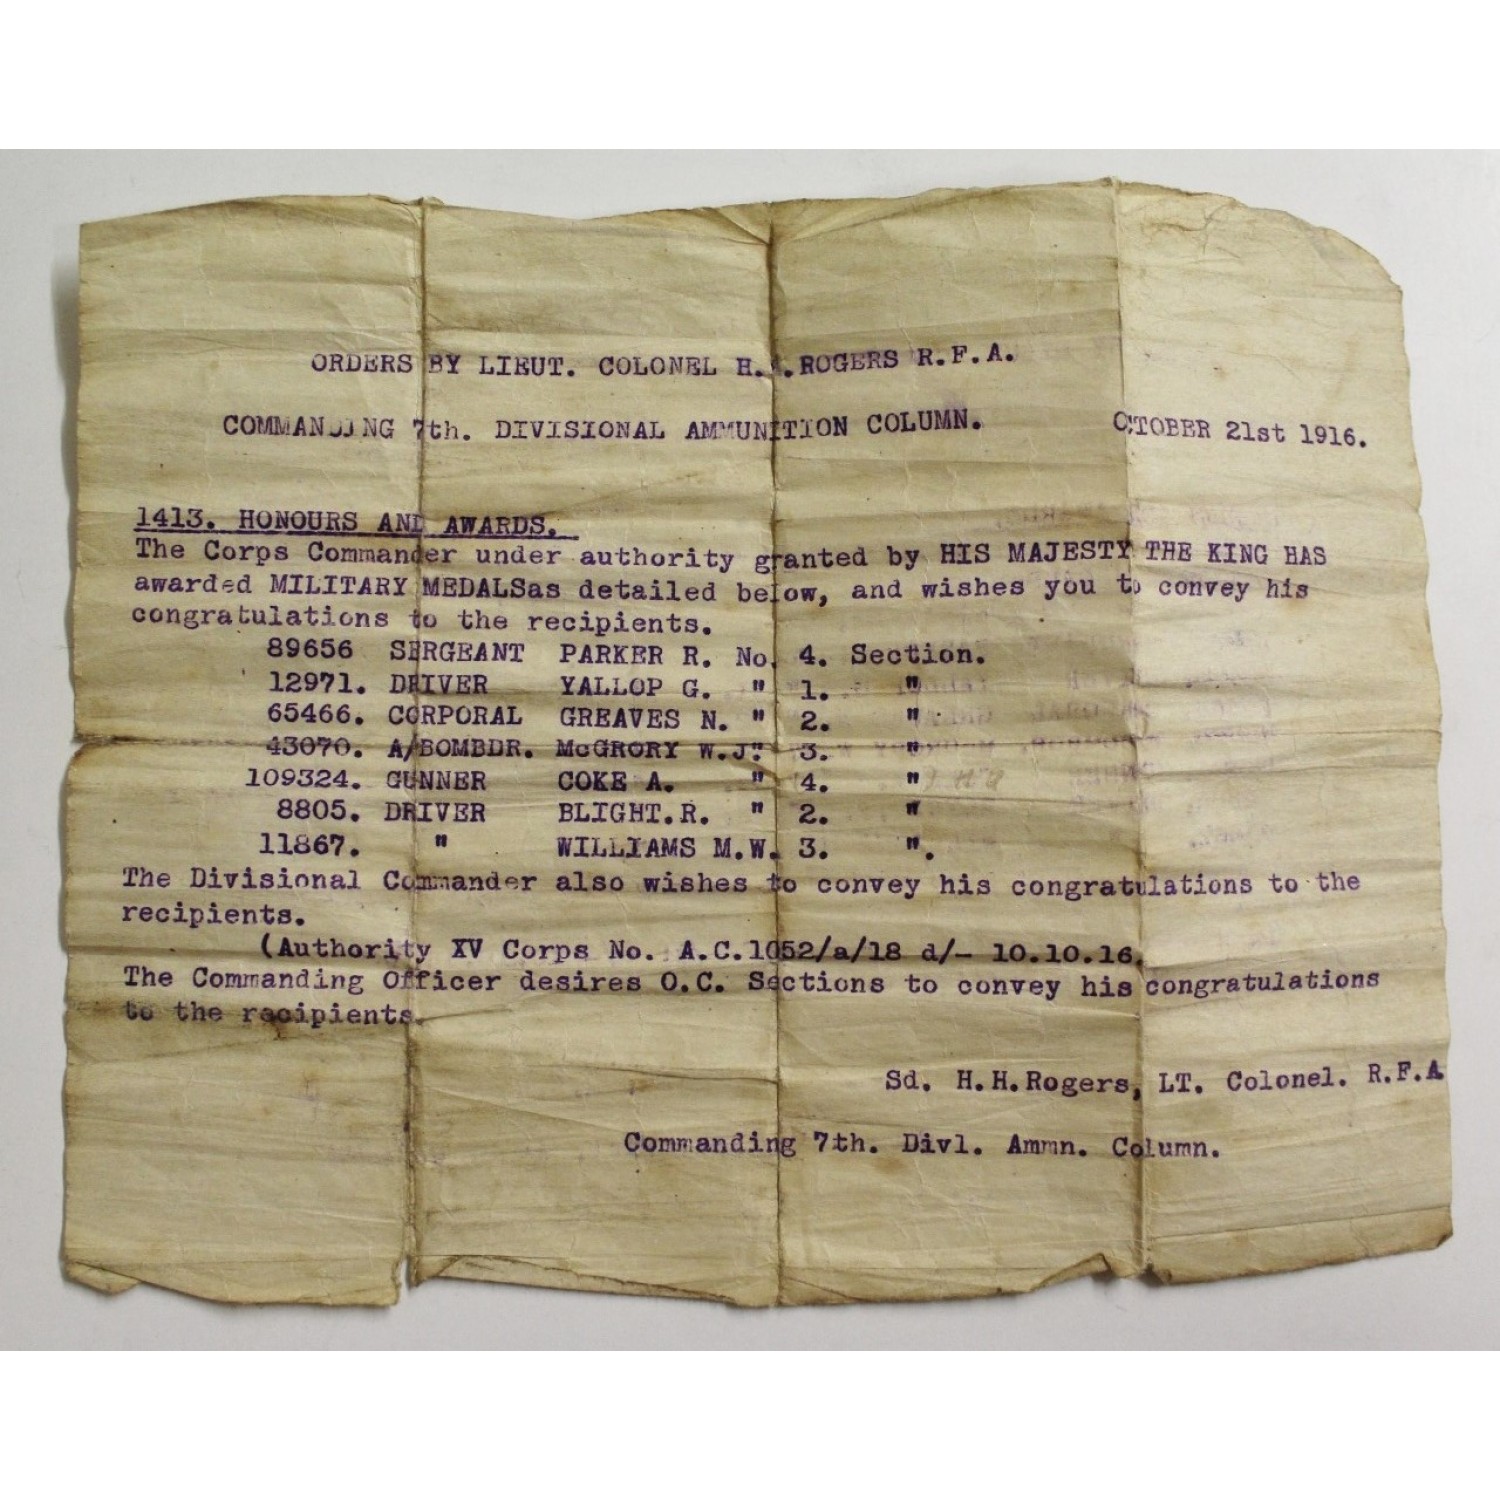 ORDERS BY LIEUT. COLONEL H. .ROGERS R.F.A.
COMMANDING 7th. DIVISIONAL AMMUNITION COLUMN. OCTOBER 21st 1916.
1413. HONOURS AND AWARDS.
The Corps Commander under authority granted by HIS MAJESTY THE KING HAS
awarded MILITARY MEDALSas detailed below, and wishes you to convey his
congratulations to the recipients.
89656 SERGEANT PARKER R. No. 4. Section.
12971. DRIVER YALLOP G. " 1. "
65466. CORPORAL GREAVES N. " 2. "
43070. A/BOMBDR. McGRORY W.J. " 3. "
109324. GUNNER COKE A. " 4. "
8805. DRIVER BLIGHT.R. " 2. "
11867. " WILLIAMS M.W. 3. ".
The Divisional Commander also wishes to convey his congratulations to the
recipients.
(Authority XV Corps No. A.C.1052/a/18 d/- 10.10.16.
The Commanding Officer desires O.C. Sections to convey his congratulations
to the recipients.
Sd. H.H.Rogers, LT. Colonel. R.F.A
Commanding 7th. Divl. Ammn. Column.